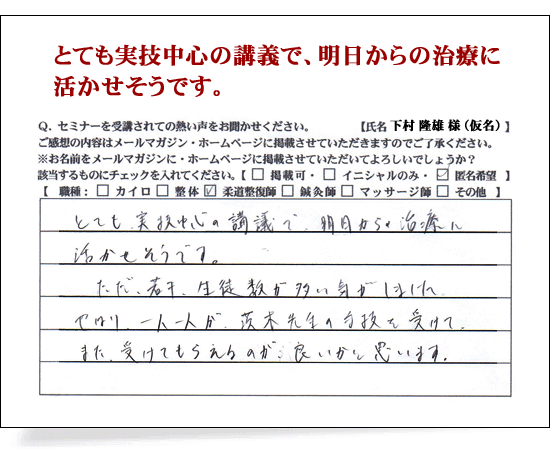 とても実技中心の講義で、明日からの治療に
活かせそうです。
Q. セミナーを受講されての熱い声をお聞かせください。 【氏名 下村 隆雄 様（仮名）】
ご感想の内容はメールマガジン・ホームページに掲載させていただきますのでご了承ください。
※お名前をメールマガジンに・ホームページに掲載させていただいてよろしいでしょうか？
該当するものにチェックを入れてください。【 □ 掲載可・ □ イニシャルのみ・ ☑ 匿名希望 】
【 職種： □ カイロ □ 整体 ☑ 柔道整復師 □ 鍼灸師 □ マッサージ師 □ その他 】
とても、実技中心の講議で、明日からの治療に
活かせそうです。
ただ、若干、生徒数が多い気がしました。
やはり、一人一人が、茨木先生の手技を受けて、
また、受けてもらえるのが、良いかと思います。